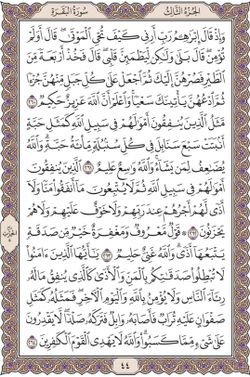 الجزء الثالث
سورة البقرة
وإذ قال إبراهم رب أرني كيف تحي الموتى قال أولم
تؤمن قال بلى ولكن ليطمئن قلبي قال فخذ أربعة من
الطير فصرهن إليك ثم اجعل على كل جبل منهن جزءا
ثم ادعهن يأتينك سعيا واعلم أن الله عزيز حكيم
مثل الذين ينفقون أموالهم في سبيل الله كمثل حبة
أنبتت سبع سنابل في كل سنبلة مائة حبة والله
يضاعف لمن يشاء والله واسع عليم الذين ينفقون
أموالهم في سبيل الله ثم لا يتبعون ما أنفقوا منا ولا
أذى لهم أجرهم عند ربهم ولا خوف عليهم ولا هم
يحزنون قول معروف ومغفرة خير من صدقة
يتبعها أذى والله غني حليم يأيها الذين ءامنوا
لا تبطلوا صدقاتكم بالمن والأذى كالذي ينفق ماله
رئاء الناس ولا يؤمن بالله واليوم الآخر فمثله كمثل
صفوان عليه تراب فأصابه وابل فتركه صلدا لا يقدرون
على شيء مما كسبوا والله لا يهدي القوم الكافرين
٤٤